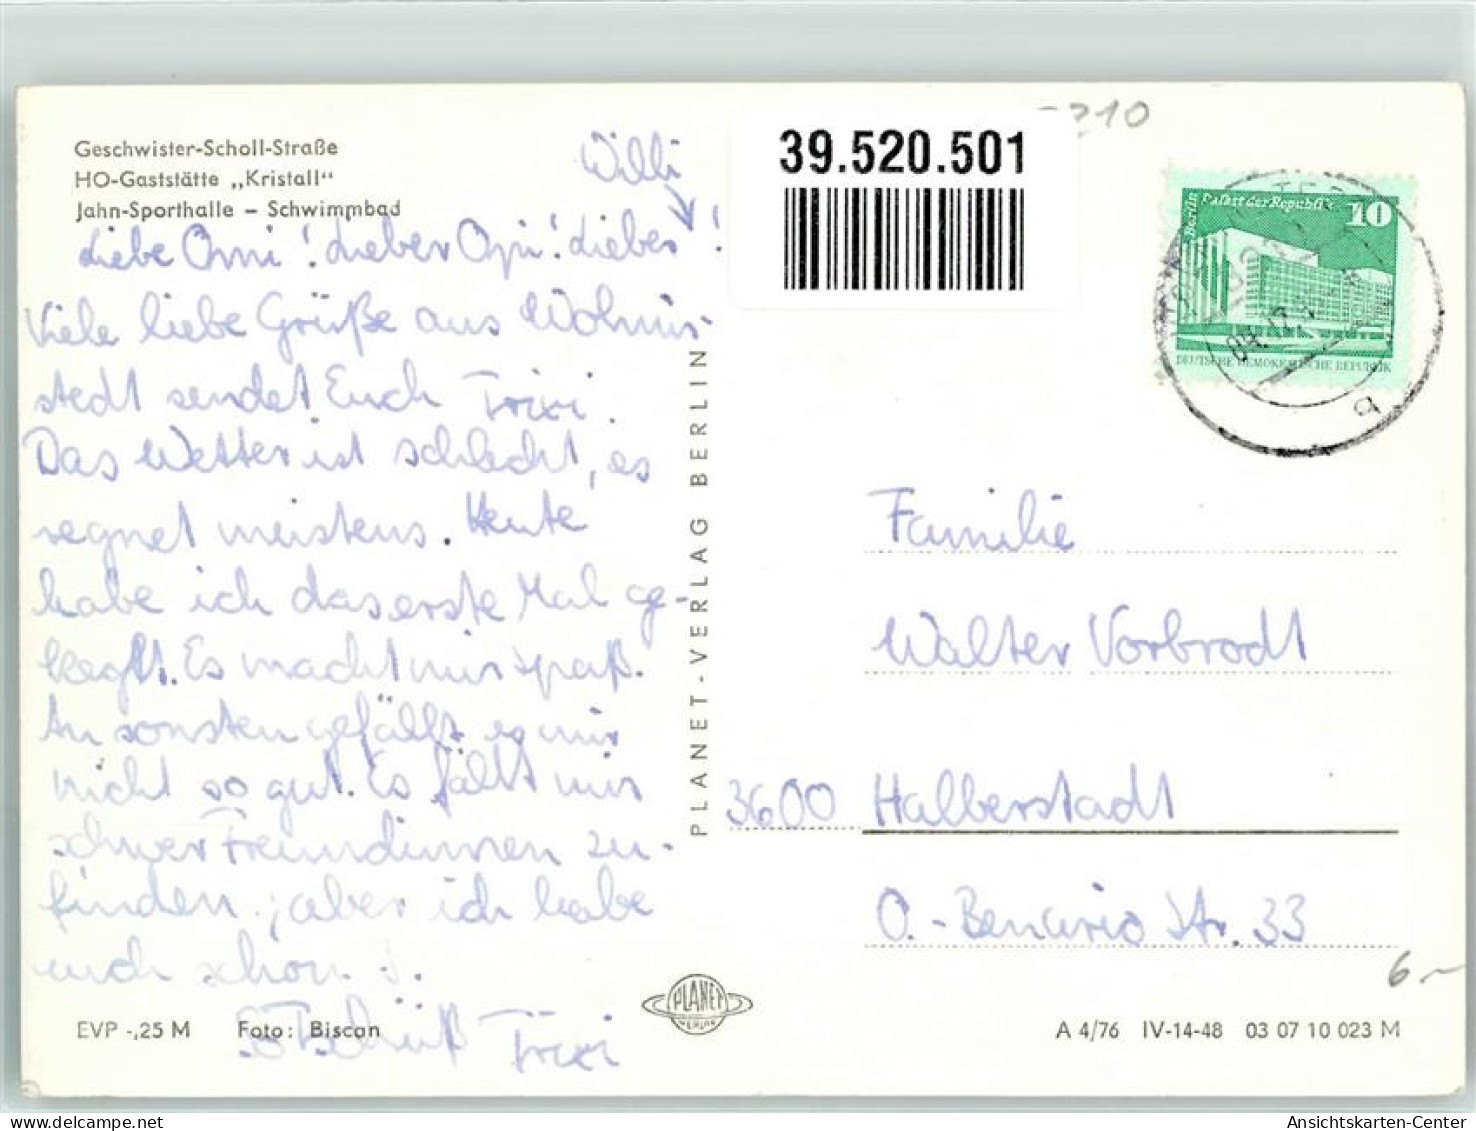 Geschwister-Scholl-Straße
HO-Gaststätte „Kristall"
Jahn-Sporthalle – Schwimmbad
Willi
Liebe Omi! Lieber Opi! Lieber !
Viele liebe Grüße aus Wolmir-
stedt sendet Euch Trixi.
Das Wetter ist schlecht, es
regnet meistens. Heute
habe ich das erste Mal ge-
Es macht mir spaß.
An sonsten gefällt es mir
nicht so gut. Es fällt mir
schwer Freundinnen zu-
finden, aber ich habe
auch schon
Tschüß Trixi
EVP -,25 M Foto: Biscan
PLANET-VERLAG BERLIN
PLANET
VERLAG
39.520.501
210
Berlin Palast der Republik 10
DEUTSCHE DEMOKRATISCHE REPUBLIK
Familie
Walter Vorbrodt
3600 Halberstadt
O.-Benario Str. 33
6.-
A 4/76 IV-14-48 03 07 10 023 M
www.delcampe.net
Ansichtskarten-Center